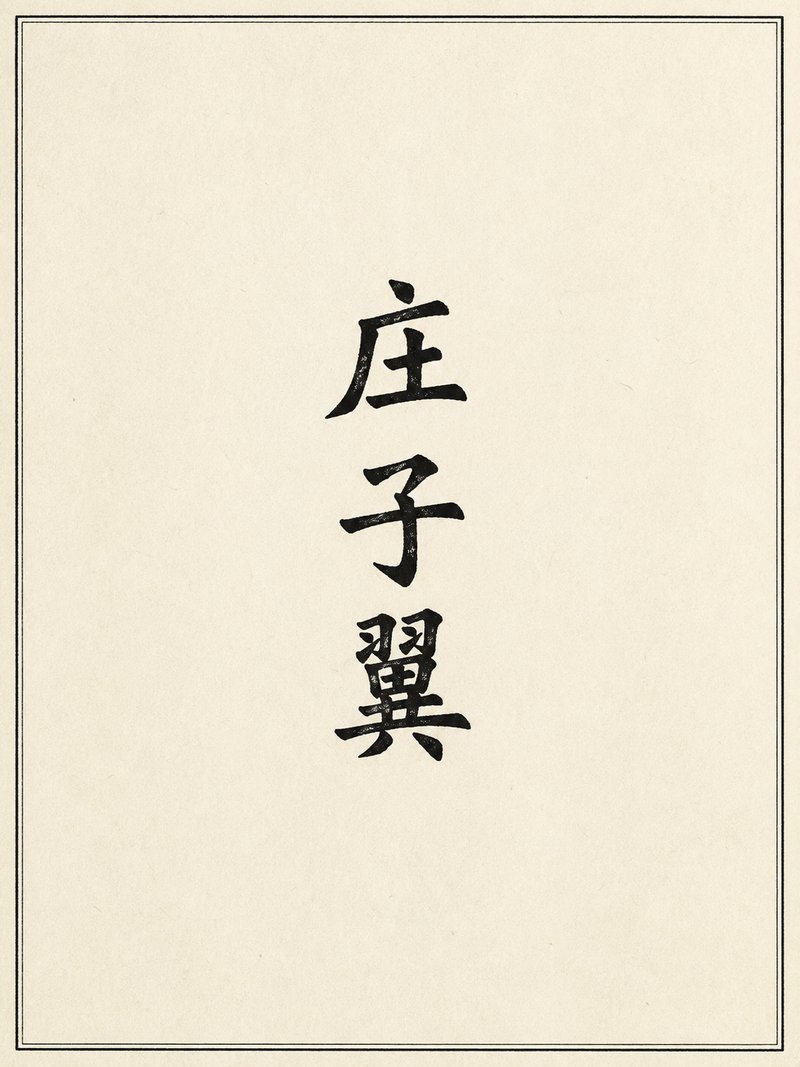 庄子翼